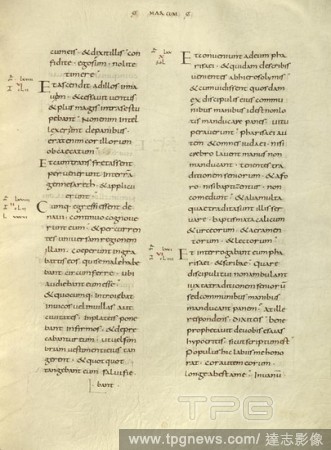 MARCUM
cumeis & dixit illis con
fidite ego sum nolite
timere
Et ascendit ad illos in na
uem & cessauit uentus
& plus magis intra se stu
pebant Non enim intel
lexerant de panibus
erat enim cor illorum
obcaecatum
Et cum transfretassent
peruenerunt in terra
gennesareth & applicu
erunt
Cumq egressi essent de
naui continuo cognoue
runt eum & percurren
tes uniuersam regionem
illam coeperunt in gra
battis eos qui se male habe
bant circumferre ubi
audiebant eum esse
& quocumq introibat
in uicos uel in uillas aut
ciuitates in plateis pone
bant infirmos & depre
cabantur eum ut uel fim
briam uestimenti eius tan
gerent & quotquot
tangebant eum salui fie
bant
Et conueniunt ad eum pha
risaei & quidam de scribis
uenientes ab hierosolymis
& cum uidissent quos
dam ex discipulis eius com
munibus manibus id est non lo
tis manducare panes uitu
perauerunt pharisaei au
tem & omnes iudaei nisi
crebro lauent manus non
manducant tenentes tra
ditionem seniorum & a fo
ro nisi baptizentur non
comedunt & alia multa
quae tradita sunt illis ser
uare baptismata calicum
& urceorum & aeramen
torum & lectorum
Et interrogabant eum pha
risaei & scribae Quare
discipuli tui non ambulant
iuxta traditionem senioru
sed communibus manibus
manducant panem At ille
respondens dixit eis bene
prophetauit de uobis esaias
hypocritis sicut scriptum est
Populus hic labiis me hono
rat cor autem eorum
longe abest a me In uanu
TPG
www.tpgnews.com / 達志影像